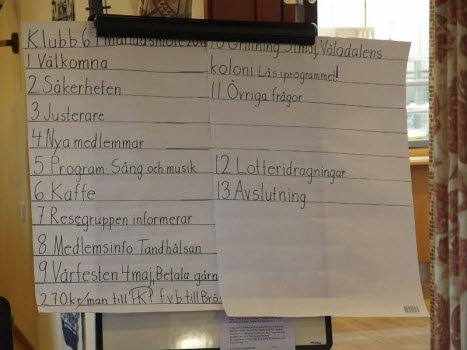 Klubb 6 Månadsmöte 20
1 Välkomna
2 Säkerheten
3 Justerare
4 Nya medlemmar
5 Program Sång och musik
6 Kaffe
7 Resegruppen informerar
8 Medlemsinfo Tandhälsan
9 Vårfesten 4 maj Betala gärn
270kr/man till fyb till Brö
10 Grillning 31 maj Våladalens
koloni Läs i programmet!
11 Övriga frågor
12 Lotteridragningar
13 Avslutning